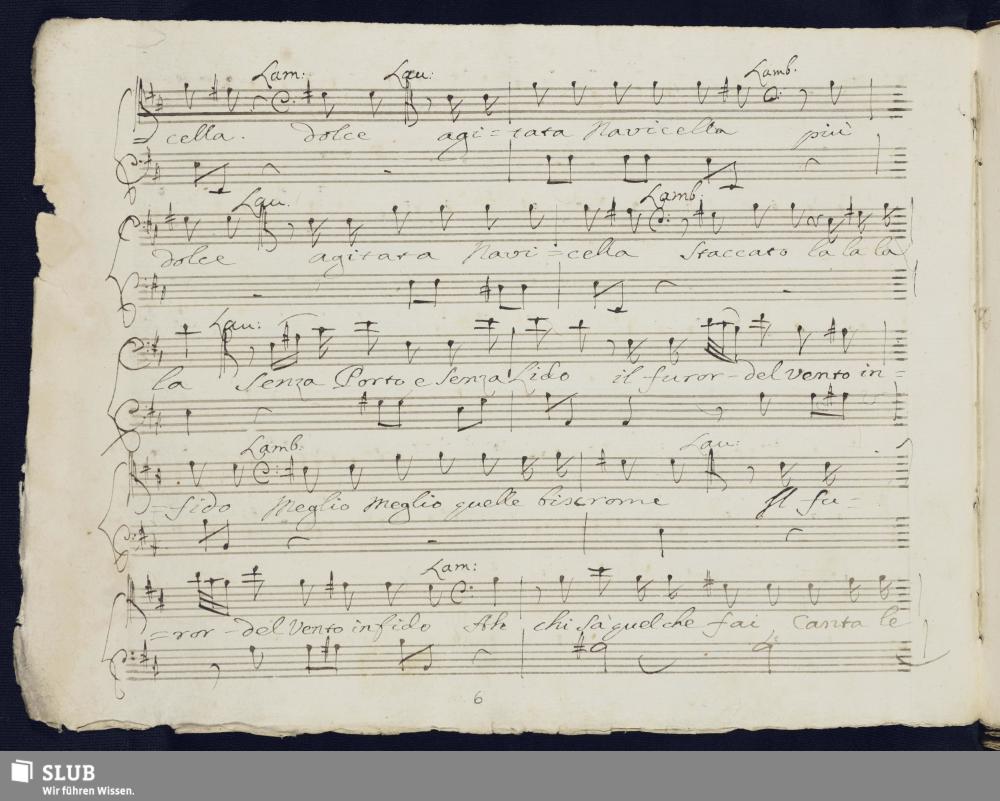 Lam: Lau: Lamb.
= cella. dolce agi=tata Navicella più
Lau. Lamb:
dolce agitata Navi=cella Staccato la la la
Lau:
la Senza Porto e Senza Lido il furor-del vento in=
Lamb. Lau:
=fido Meglio Meglio quelle biscrome Il fu=
Lam:
=ror-del Vento infido Ah chi sà quel che fai Canta le
6
SLUB
Wir führen Wissen.